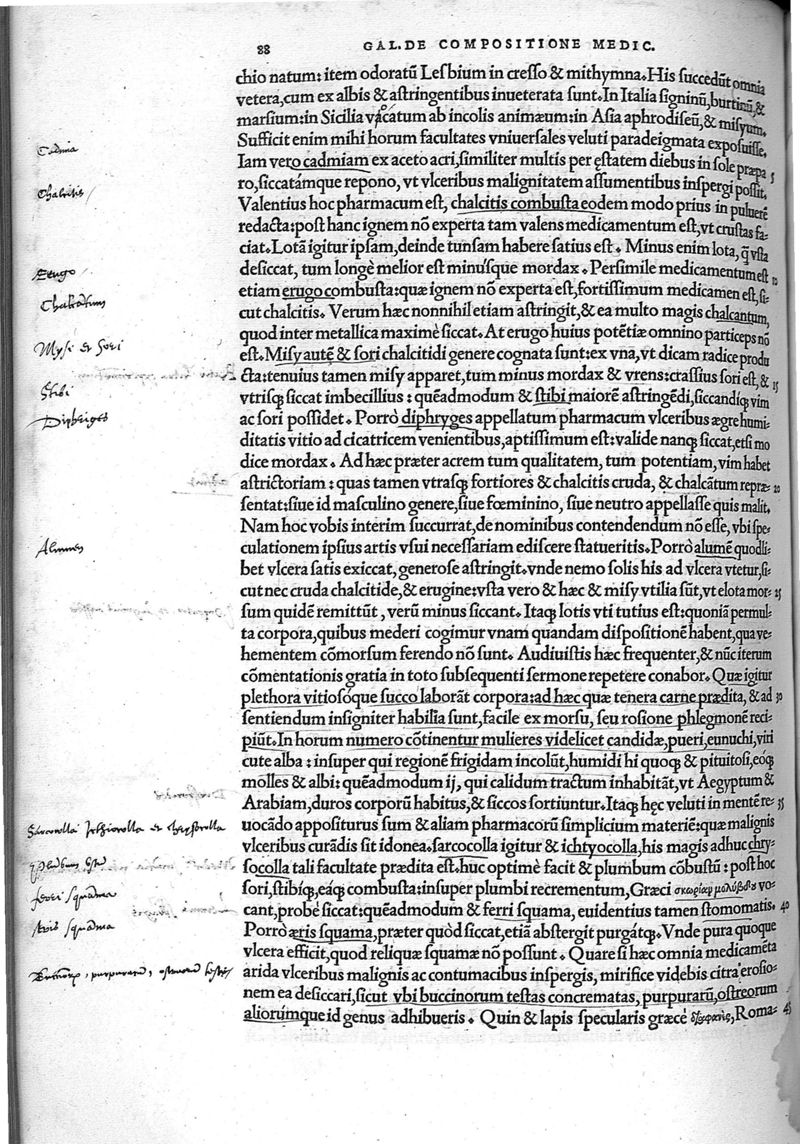 88 GAL. DE COMPOSITIONE MEDIC.
chio natum: item odoratũ Lesbium in cresso & mithymna. His succedũt omnia
vetera, cum ex albis & astringentibus inueterata sunt. In Italia signinũ, burtinũ, &
marsium: in Sicilia vocatum ab incolis animæum: in Asia aphrodiseũ, & misyum.
Sufficit enim mihi horum facultates vniuersales veluti paradeigmata exposuisse.
Cadmia
Iam vero cadmiam ex aceto acri, similiter multis per ęstatem diebus in sole præpa 5
ro, siccatámque repono, vt vlceribus malignitatem assumentibus inspergi possit.
Chalcitis
Valentius hoc pharmacum est, chalcitis combusta eodem modo prius in puluerẽ
redacta: post hanc ignem nõ experta tam valens medicamentum est, vt crustas fa-
ciat. Lotã igitur ipsam, deinde tunsam habere satius est. Minus enim lota, q̃ vsta
desiccat, tum longè melior est minúsque mordax. Persimile medicamentum est 10
Erugo
etiam erugo combusta: quæ ignem nõ experta est, fortissimum medicamen est, si-
Chalcãtum
cut chalcitis. Verum hæc nonnihil etiam astringit, & ea multo magis chalcantum,
quod inter metallica maximè siccat. At erugo huius potẽtiæ omnino particeps nõ
Mysi et Sori
est. Misy autẽ & sori chalcitidi genere cognata sunt: ex vna, vt dicam radice produ
cta: tenuius tamen misy apparet, tum minus mordax & vrens: crassius sori est, & 15
Stibi
vtrisq́ siccat imbecillius: quẽadmodum & stibi maiorẽ astringẽdi, siccandíq́ vim
Diphriges
ac sori possidet. Porrò diphryges appellatum pharmacum vlceribus ægre humi-
ditatis vitio ad cicatricem venientibus, aptissimum est: valide nanq́ siccat, etsi mo
dice mordax. Ad hæc præter acrem tum qualitatem, tum potentiam, vim habet
astrictoriam: quas tamen vtrasq́ fortiores & chalcitis cruda, & chalcãtum repræ- 20
sentat: siue id masculino genere, siue fœminino, siue neutro appellasse quis malit.
Nam hoc vobis interim succurrat, de nominibus contendendum nõ esse, vbi spe-
Alumen
culationem ipsius artis vsui necessariam ediscere statueritis. Porrò alumẽ quodli-
bet vlcera satis exiccat, generose astringit. vnde nemo solis his ad vlcera vtetur, si-
cut nec cruda chalcitide, & erugine: vsta vero & hæc & misy vtilia sũt, vt elota mor- 25
sum quidẽ remittũt, verũ minus siccant. Itaq́ lotis vti tutius est: quoniã permul-
ta corpora, quibus mederi cogimur vnam quandam dispositionẽ habent, qua ve-
hementem cõmorsum ferendo nõ sunt. Audiuistis hæc frequenter, & nũc iterum
cõmentationis gratia in toto subsequenti sermone repetere conabor. Quæ igitur
plethora vitiosóque succo laborãt corpora: ad hæc quæ tenera carne prædita, & ad 30
sentiendum insigniter habilia sunt, facile ex morsu, seu rosione phlegmonẽ reci-
piũt. In horum numero cõtinentur mulieres videlicet candidæ, pueri, eunuchi, viri
cute alba: insuper qui regionẽ frigidam incolũt, humidi hi quoq́ & pituitosi, eóq́
molles & albi: quẽadmodum ij, qui calidum tractum inhabitãt, vt Aegyptum &
Arabiam, duros corporũ habitus, & siccos sortiuntur. Itaq́ hęc veluti in mentẽ re- 35
Sarcocolla Ichtiocolla et chrysocolla
uocãdo appositurus sum & aliam pharmacorũ simplicium materiẽ: quæ malignis
vlceribus curãdis sit idonea. sarcocolla igitur & ichtyocolla, his magis adhuc chry-
plumbum ustum
socolla tali facultate prædita est. huc optimè facit & plumbum cõbustũ: post hoc
ferri squama
sori, stibíq́, eáq́ combusta: insuper plumbi recrementum, Græci σκωρίαν μολύβδου vo-
cant, probè siccat: quẽadmodum & ferri squama, euidentius tamen stomomatis. 40
Aeris squama
Porrò æris squama, præter quòd siccat, etiã abstergit purgátq́. Vnde pura quoque
vlcera efficit, quod reliquæ squamæ nõ possunt. Quare si hæc omnia medicamẽta
arida vlceribus malignis ac contumacibus inspergis, mirifice videbis citra erosio-
nem ea desiccari, sicut vbi buccinorum testas concrematas, purpurarũ, ostreorum
aliorumque id genus adhibueris. Quin & lapis specularis græcè, Roma- 45